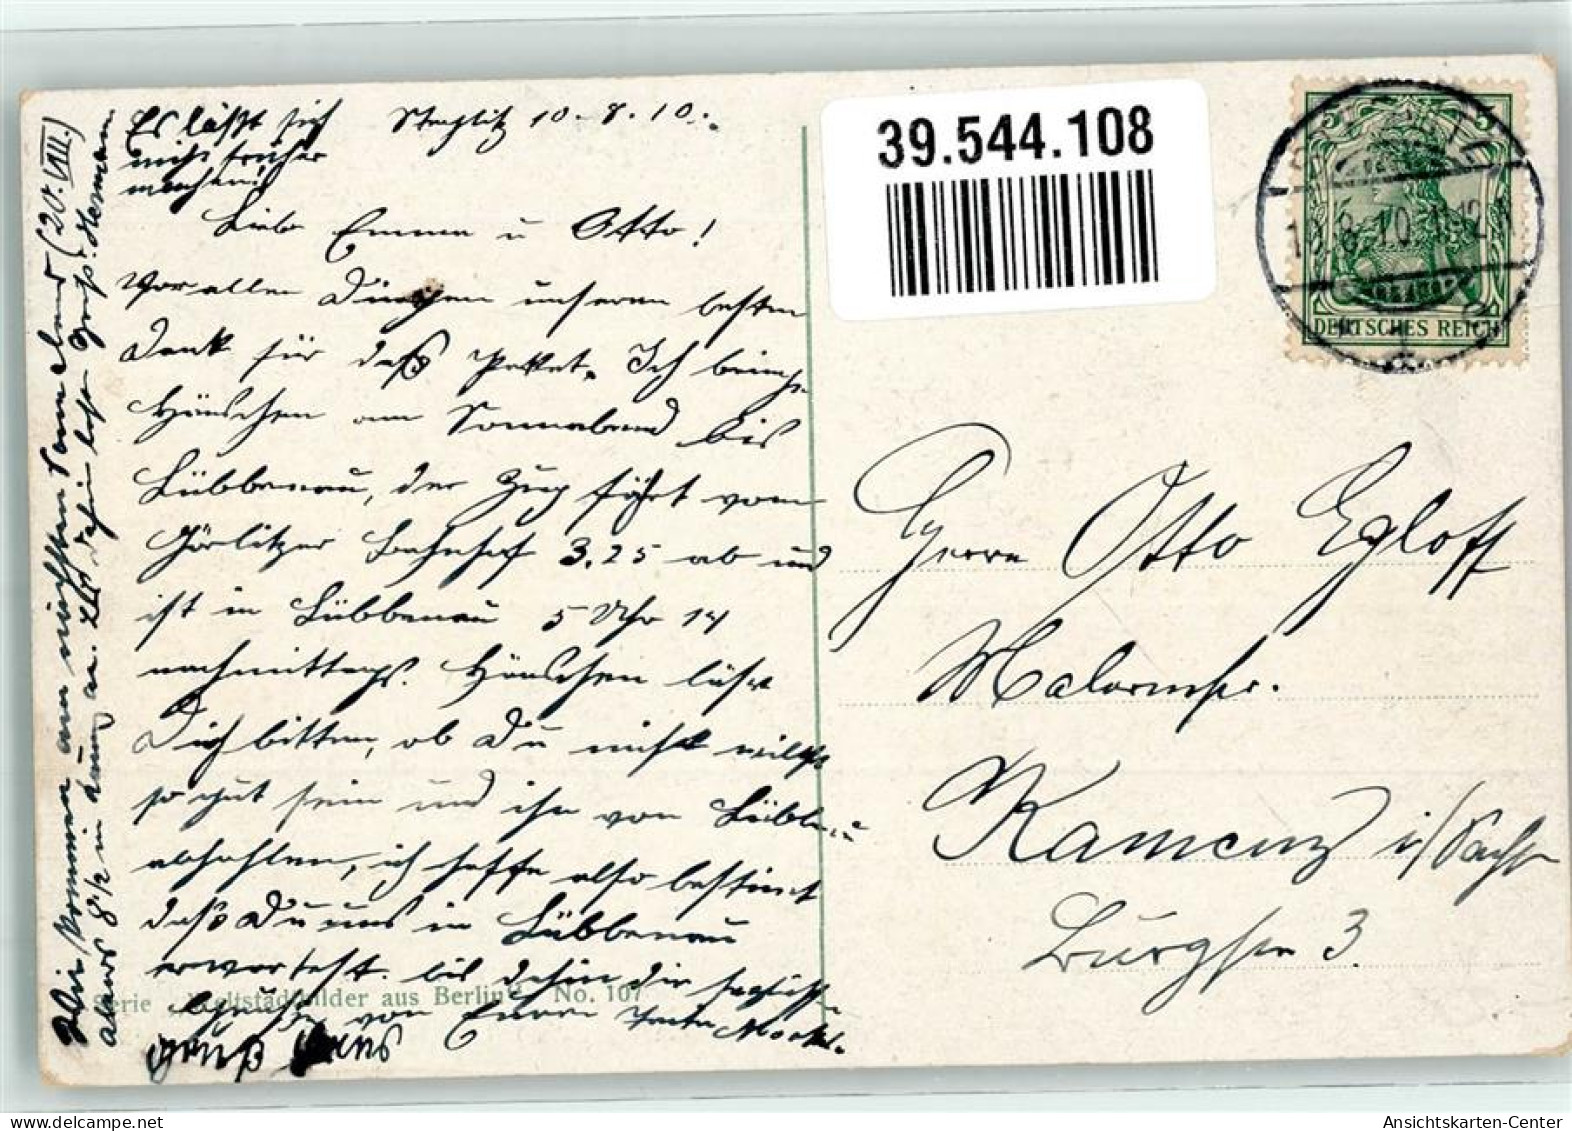 Es läßt sich
nicht früher
machen!
Steglitz 10.8.10.
Liebe Emma u Otto!
Vor allen Dingen unseren besten
Dank für das Paket. Ich bringe
Hänschen am Sonnabend bis
Lübbenau, der Zug fährt vom
Görlitzer Bahnhof 3.25 ab und
ist in Lübbenau 5 Uhr 14
nachmittags. Hänschen läßt
Dich bitten, ob Du nicht willst
so gut sein und ihn von Lübbenau
abhohlen, ich hoffe also bestimmt
daß Du uns in Lübbenau
erwartest. bis dahin die
Grüße von Eurer Tante
Gruß Hans
Wir kommen am nächsten Sonnabend (20. VIII.)
abends 8 1/2 in
Serie „Weltstadtbilder aus Berlin“ No. 107
39.544.108
5
10.8.10.
DEUTSCHES REICH
Herrn Otto Egloff
Malermstr.
Kamenz i/Sachs
Burgstr 3.
Ansichtskarten-Center